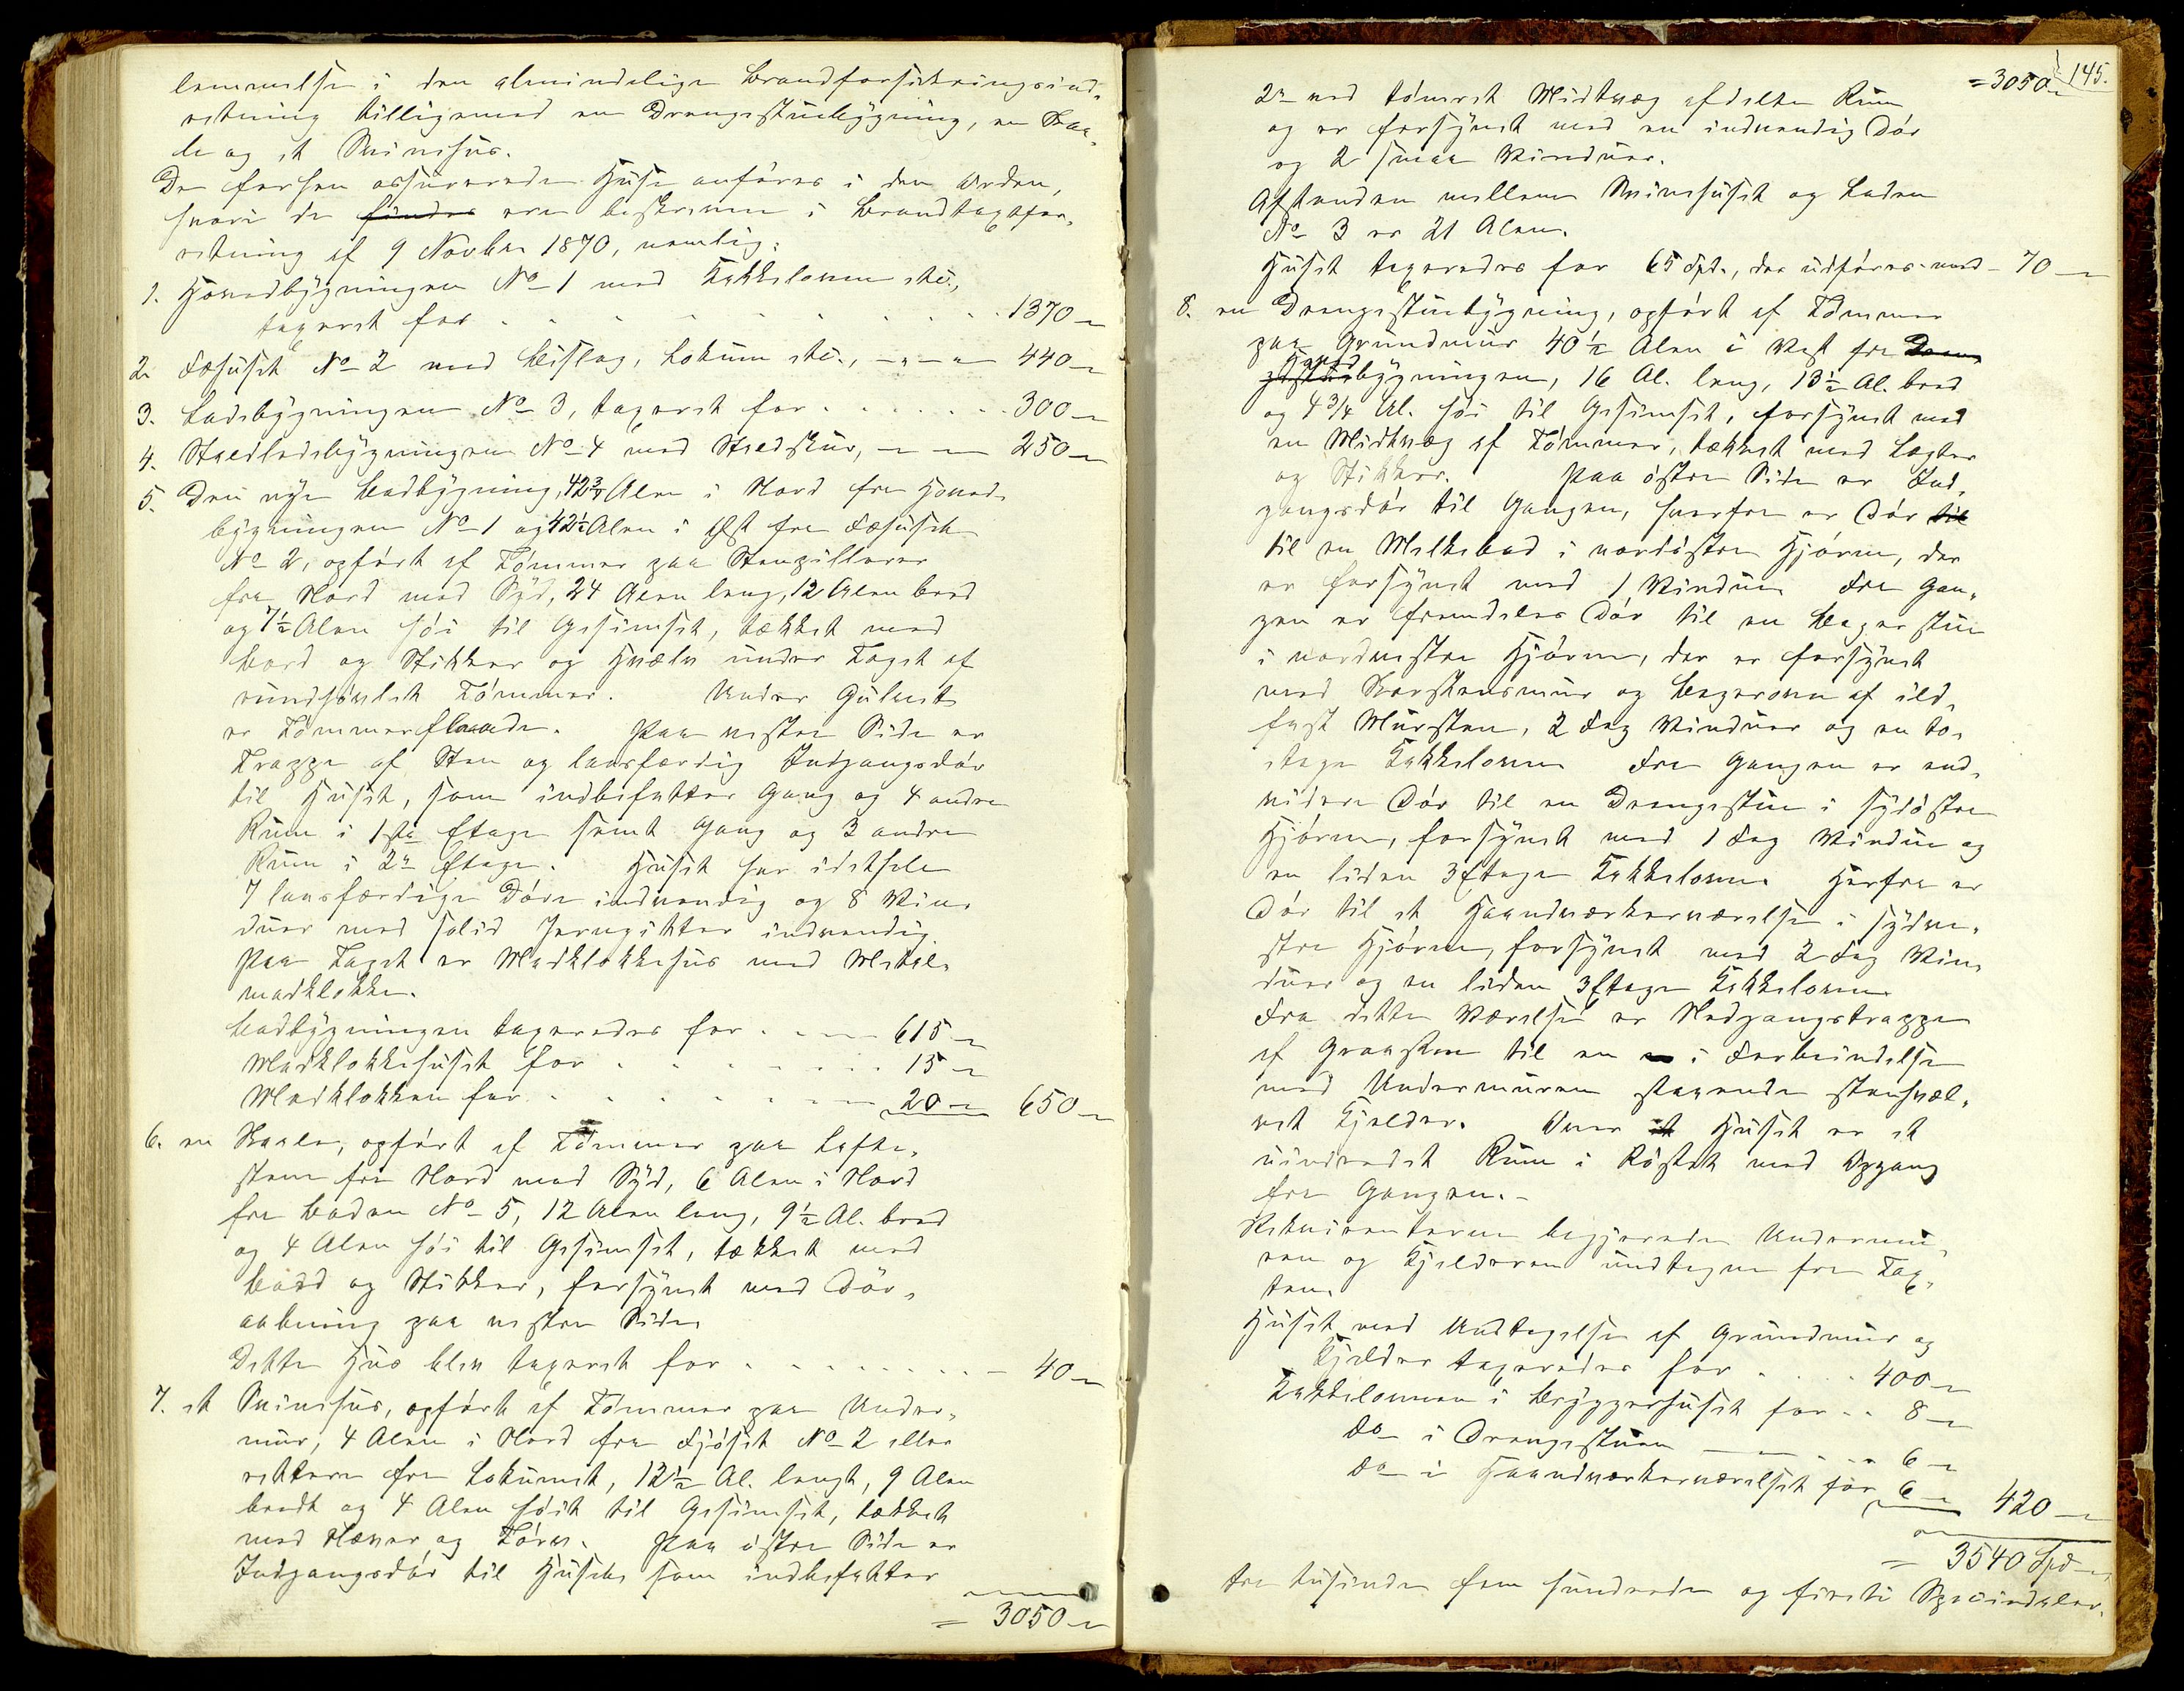 lemmelse i den almindelige Brandforsikringsind-
retning tilligemed en Drengestuebygning, en Skaa-
le og et Sviinehus.
De forhen assurerede Huse anføres i den Orden,
hvori de findes ere beskrevne i Brandtaxtfor-
retning af 9 Novber 1870, nemlig:
1. Hovedbygningen No 1 med Kakkelovne etc.,
taxeret for . . . . . . . . . 1370 -
2. Fæhuset No 2 med Bislag, Lokum etc., - " - " - 440 -
3. Ladebygningen No 3, taxeret for . . . . . . . 300 -
4. Staldladebygningen No 4 med Skedskur, - " - 250 -
5. Den nye Bodbygning, 42 3/4 Alen i Nord fra Hoved-
bygningen No 1 og 42 1/2 Alen i Øst fra Fæhuset
No 2, opført af Tømmer paa Stenpillarer
fra Nord mod Syd, 24 Alen lang, 12 Alen bred
og 7 1/2 Alen høi til Gesimset, tækket med
Bord og Stikker og Hvælv under Taget af
rundhøvlet Tømmer. Under Gulvet
er Tømmerflaade. Paa vestre Side er
Trappe af Sten og laasfærdig Indgangsdør
til Huset, som indbefatter Gang og 4 andre
Rum i 1ste Etage samt Gang og 3 andre
Rum i 2n Etage. Huset har idethele
7 laasfærdige Døre indvendig og 8 Vin-
duer med solid Jerngitter indvendig.
Paa Taget er Madklokkehus med Metal-
madklokke.
Bodbygningen taxeredes for . . . - 615 -
Madklokkehuset for . . . . . . . 15 -
Madklokken for . . . . . . . - 20 - 650 -
6. en Skaale, opført af Tømmer paa Lofte-
stene fra Nord mod Syd, 6 Alen i Nord
fra Boden No 5, 12 Alen lang, 9 1/2 Al. bred
og 4 Alen høi til Gesimset, tækket med
Bord og Stikker, forsynet med Dør-
aabning paa vestre Side.
Dette Hus blev taxeret for . . . . . . . . - 40 -
7. et Sviinehus, opført af Tømmer paa Under-
mur, 4 Alen i Nord fra Fjøset No 2 eller
rettere fra Lokumet, 12 1/2 Al. langt, 9 Alen
bredt og 4 Alen høit til Gesimset, tækket
med Næver og Tørv. Paa østre Side er
Indgangsdør til Huset som indbefatter
= 3050 -
= 3050 - 145.
2n ved tømret Midtvæg afdelte Rum
og er forsynet med en indvendig Dør
og 2 smaa Vinduer.
Afstanden mellem Sviinehuset og Laden
No 3 er 21 Alen.
Huset taxeredes for 65 Spd., der udføres med - 70 -
8. en Drengestuebygning, opført af Tømmer
paa Grundmur 40 1/2 Alen i Vest fra Dren
Hoved
gestuebygningen, 16 Al. lang, 13 1/2 Al. bred
og 4 3/4 Al. høi til Gesimset, forsynet med
en Midtvæg af Tømmer, tækket med Lægter
og Stikker. Paa østre Side er Ind-
gangsdør til Gangen, hvorfra er Dør til
til en Melkebod i nordøstre Hjørne, der
er forsynet med 1 Vindue. Fra Gan-
gen er fremdeles Dør til en Bagerstue
i nordvestre Hjørne, der er forsynet
med Skorstensmur og Bagerovn af ild-
fast Mursten, 2 Fag Vinduer og en to-
etages Kakkelovn. Fra Gangen er end-
videre Dør til en Drengestue i sydøstre
Hjørne, forsynet med 1 Fag Vindue og
en liden 3 Etages Kakkelovn. Herfra er
Dør til et Haandværkerværelse i sydve-
stre Hjørne, forsynet med 2 Fag Vin-
duer og en liden 3 Etages Kakkelovn.
Fra dette Værelse er Nedgangstrappe
af Graasten til en i Forbindelse
med Undermuren staaende stenhvæl-
vet Kjelder. Over et Huset er et
uindredet Rum i Røstet med Opgang
fra Gangen. -
Rekvirenterne begjærede Undermu-
ren og Kjelderen undtagne fra Tax-
ten.
Huset med Undtagelse af Grundmur og
Kjelder taxeredes for . . . . 400 -
Kakkelovnen i Bryggerhuset for . . 8 -
do - i Drengestuen - - . . - 6 -
do - i Haandværkerværelset for 6 - 420 -
= 3540 Spd -
tre tusinde fem hundrede og firti Speciedaler.